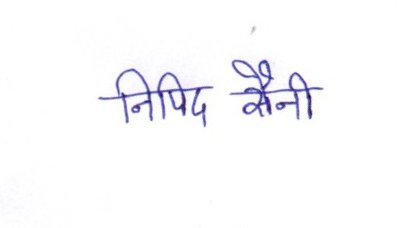 निपिद सैनी